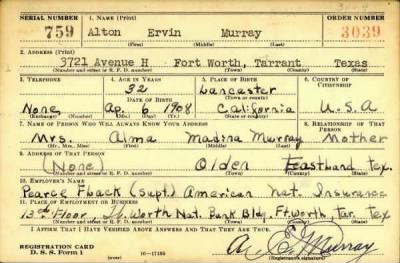 SERIAL NUMBER 1. NAME (Print) ORDER NUMBER
759 Alton Ervin Murray 3039
(First) (Middle) (Last)
2. ADDRESS (Print)
3721 Avenue H Fort Worth, Tarrant Texas
(Number and street or R. F. D. number) (Town) (County) (State)
3. TELEPHONE 4. AGE IN YEARS 5. PLACE OF BIRTH 6. COUNTRY OF CITIZENSHIP
32 Lancaster
DATE OF BIRTH (Town or county)
None Ap. 6 1908 California U.S.A
(Exchange) (Number) (Mo.) (Day) (Yr.) (State or country)
7. NAME OF PERSON WHO WILL ALWAYS KNOW YOUR ADDRESS 8. RELATIONSHIP OF THAT PERSON
Mrs. Alma Madina Murray Mother
(Mr., Mrs., Miss) (First) (Middle) (Last)
9. ADDRESS OF THAT PERSON
(None) Olden Eastland Tex.
(Number and street or R. F. D. number) (Town) (County) (State)
10. EMPLOYER'S NAME
Pearce (Supt.) American Nat. Insurance
11. PLACE OF EMPLOYMENT OR BUSINESS
13th Floor Ft. Worth Nat. Bank Bldg. Ft. Worth, Tar. Tex
(Number and street or R. F. D. number) (Town) (County) (State)
I AFFIRM THAT I HAVE VERIFIED ABOVE ANSWERS AND THAT THEY ARE TRUE.
REGISTRATION CARD
D. S. S. Form 1 16—17105 A. E. Murray
(Registrant's signature)